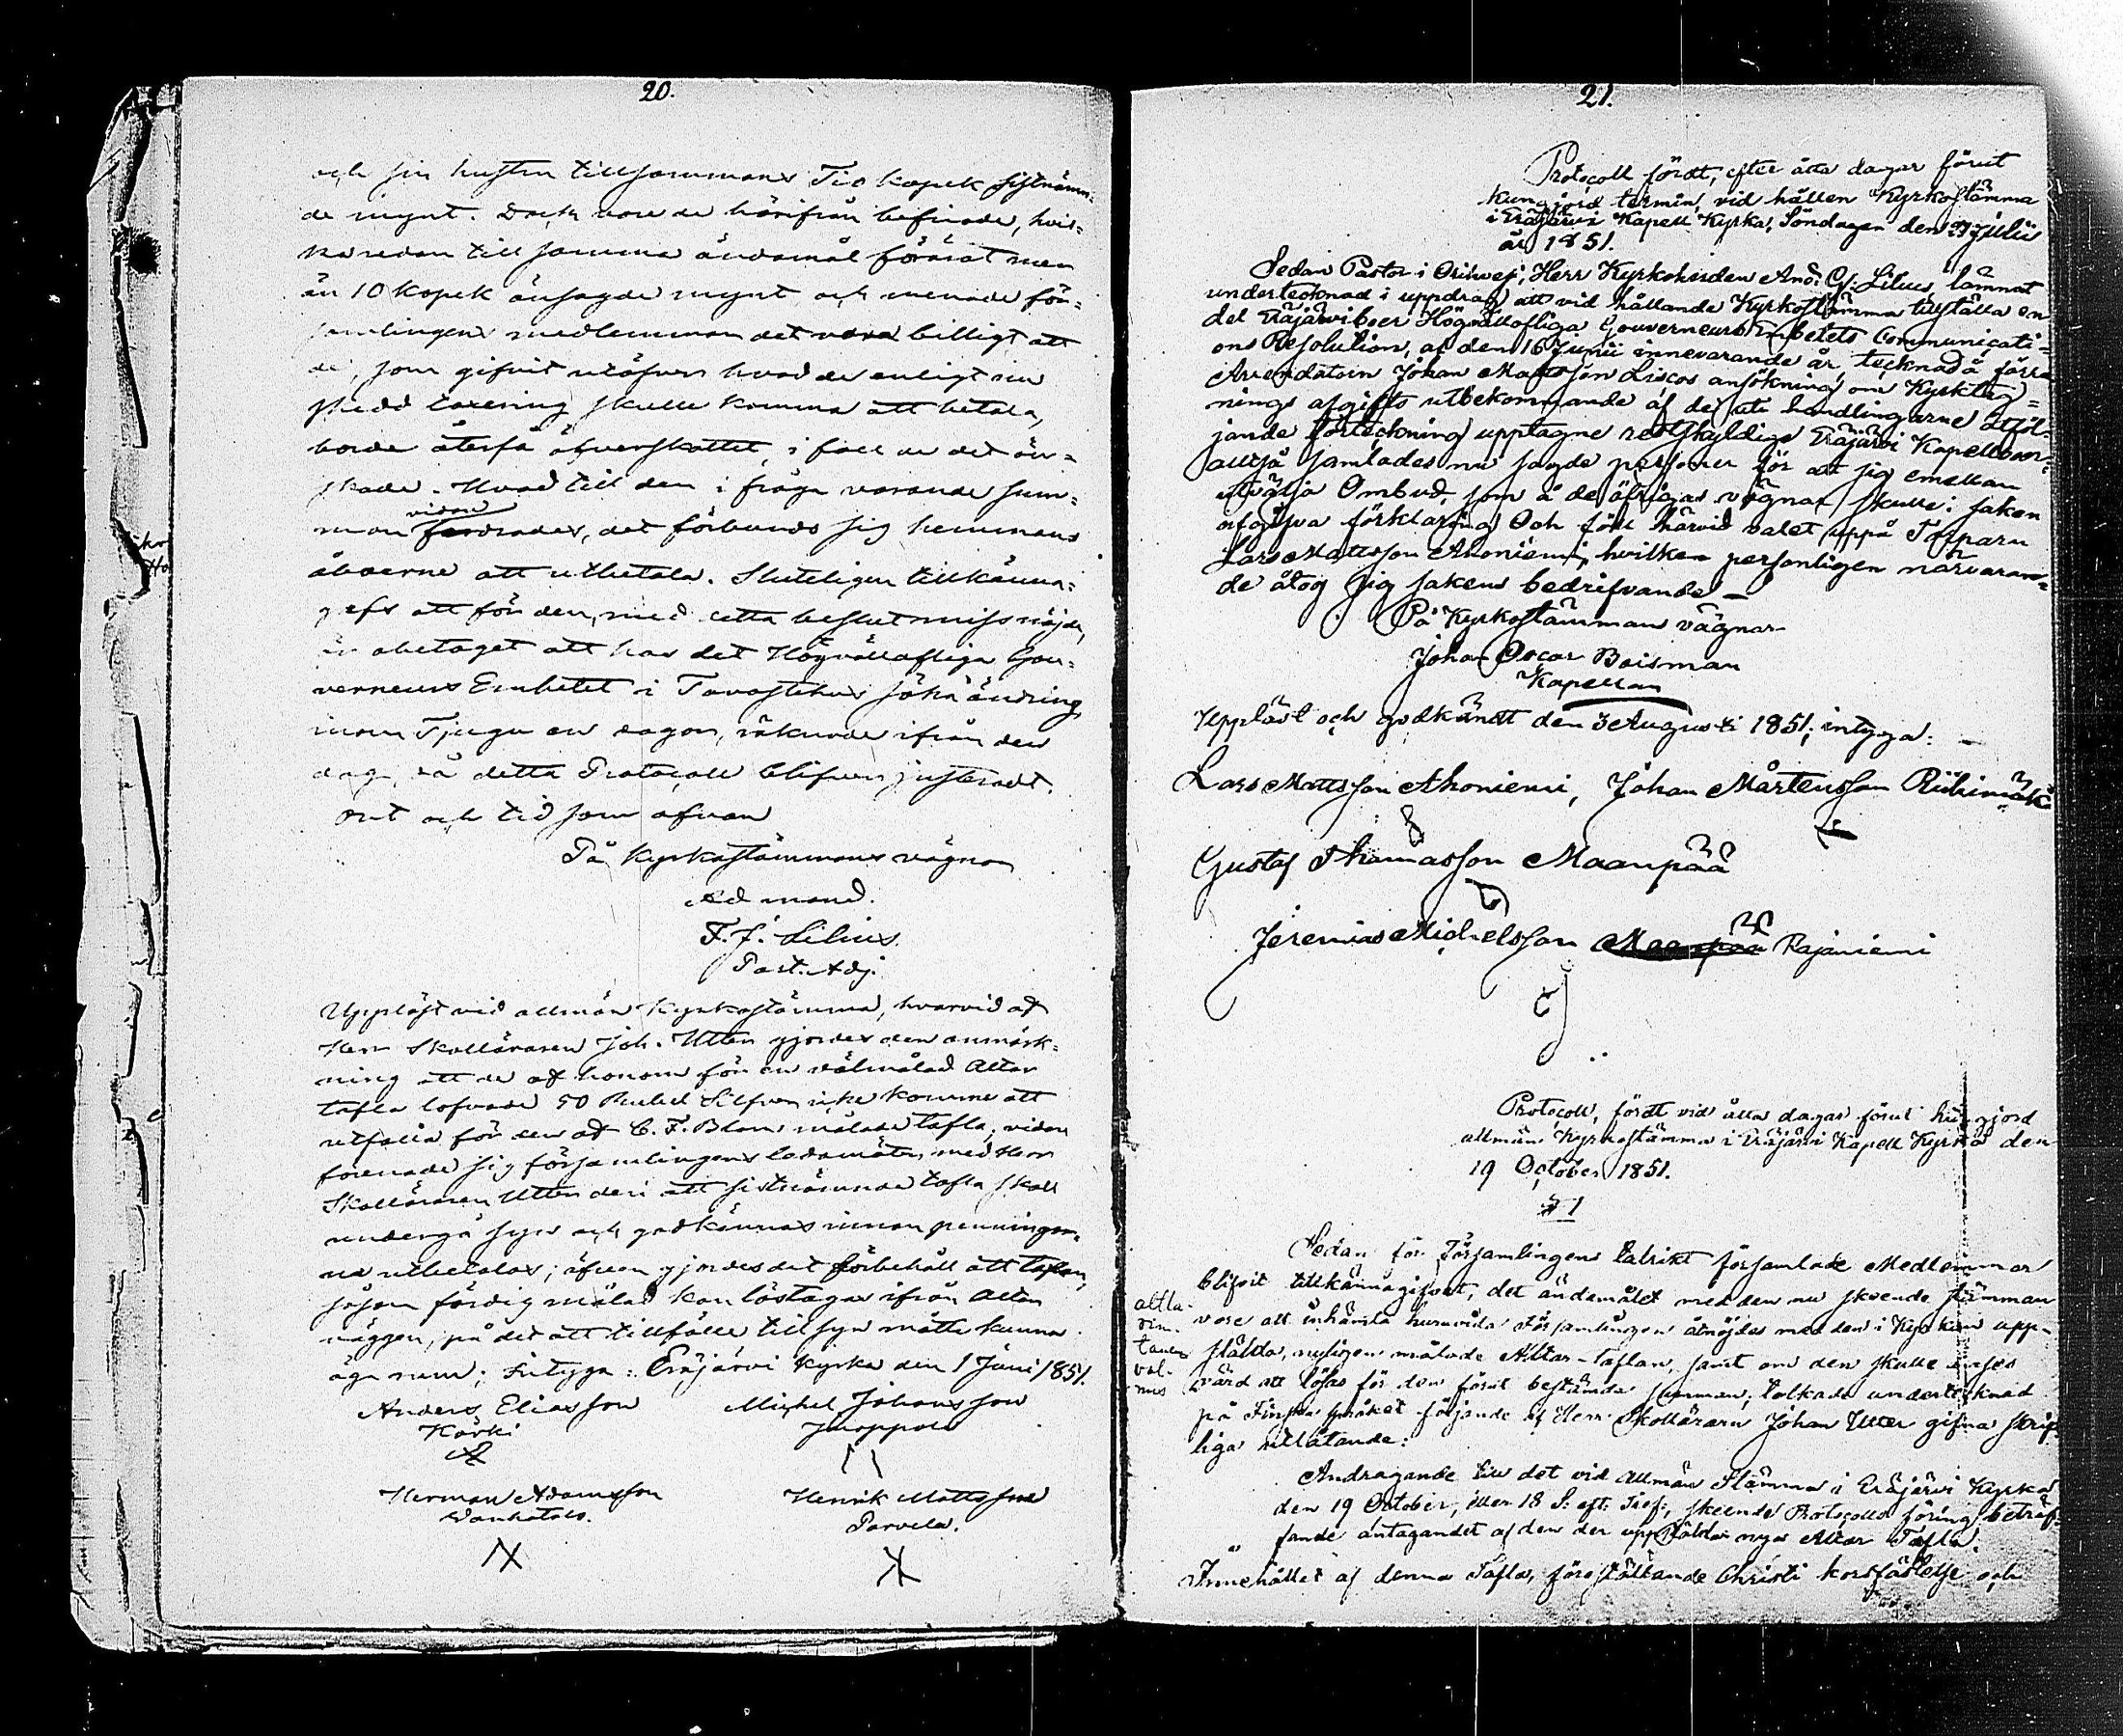 20.
och sin hustru tillsammans Tio kopek sistnämn-
de mynt. Dock vore de härifrån befriade, hvil-
ka redan till samma ändamål förärat mer
än 10 kopek änsagde mynt, och menade för-
samlingens medlemmar det vara billigt att
de, som gifvit utöfver hvad de enligt nu
skedd taxering skulle komma att betala,
borde återfå öfverskottet, i fall de det ön-
skade. Hvad till den i fråga varande sum-
man vidare fordrades, det förbundo sig hemmans
åboerne att utbetala. Sluteligen tillkänna-
gafs att för den, med detta beslut missnöjde,
är obetaget att hos det Högvällofliga Gou-
verneurs Embetet i Tavastehus söka ändring
inom Tjugu en dagar, räknade ifrån den
dag, då detta Protocoll blifver justeradt.
Ort och tid som ofvan
På Kyrkostämmans vägnar
Ad mand.
F. J. Lilius.
Past. Adj.
Uppläst vid allmän Kyrkostämma, hvarvid af
Herr Skolläraren Joh. Utter gjordes den anmärk-
ning att de af honom för en välmålad Altar
tafla lofvade 50 Rubel Silfver icke komme att
utfalla för den af C. F. Blom målade tafla; vidare
förenade sig församlingens ledamöter med Herr
Skolläraren Utter deri att sistnämnde tafla skall
undergå syn och godkännas innan penningar-
na utbetalas; äfven gjordes det förbehåll att taflan,
såsom färdig målad kan löstagas ifrån Altar
väggen, på det att tillfälle till syn måtte kunna
äga rum; Intyga: Eräjärvi Kyrka den 1 Juni 1851.
Anders Eliasson Michel Johansson
Kärki Juoppola
Herman Adamsson Henrik Mattsson
Vanhatalo. Parvela.
21.
Protocoll fördt, efter åtta dagar förut
kungjord termin, vid hållen Kyrkostämma
i Eräjärvi Kapell Kyrka, Söndagen den 27 Julii
år 1851.
Sedan Pastor i Orihvesi, Herr Kyrkoherden And. G. Lilius lämnat
undertecknad i uppdrag att vid hållande Kyrkostämma tillställa en
del Eräjärviboer Högvällofliga Gouverneurs Embetets Communicati-
ons Resolution, af den 16 Junii innevarande år, tecknad å förra
Arrendatorn Johan Mattsson Liscos ansökning om Kyrktag-
nings afgifts utbekommande af de uti handlingarne åtföl-
jande förteckning upptagne restskyldige Eräjärvi Kapellboer;
alltså samlades nu sagde personer för att sig emellan
utvälja Ombud, som å de öfrigas vägnar skulle i saken
afgifva förklaring Och föll härvid valet uppå Torparn
Lars Mattsson Ahoniemi, hvilken personligen närvaran-
de åtog sig sakens bedrifvande -
På Kyrkostämmans vägnar
Johan Oscar Boisman
Kapellan
Uppläst och godkändt den 3 Augusti 1851; intyga: -
Lars Mattsson Ahoniemi, Johan Mårtensson Riihimäki
Gustaf Thomasson Maanpää
Jeremias Michelsson Maanpää Rajaniemi
Protocoll, fördt vid åtta dagar förut kungjord
allmän Kyrkostämma i Eräjärvi Kapell Kyrka den
19 October 1851.
§ 1
Sedan för Församlingens talrikt församlade Medlemmar
blifvit tillkännagifvet, det ändamålet med den nu skeende stämman
vore att inhämta huruvida Församlingen åtnöjdes med den i Kyrkan upp-
ställda, nyligen målade Altar-taflan, samt om den skulle anses
värd att lösas för den förut bestämda summan, tolkade undertecknad
på Finska språket följande af Herr Skolläraren Johan Utter gifna skrift-
liga utlåtande:
altta-
rin-
taulu
val-
mis
Andragande till det vid allmän Stämma i Eräjärvi Kyrka
den 19 October, eller 18 S: eft. Tref:, skeende Protocolls föring beträf-
fande antagandet af den der uppställda nya Altar Tafla.
Innehållet af denna Tafla, föreställande Christi korsfästelse och